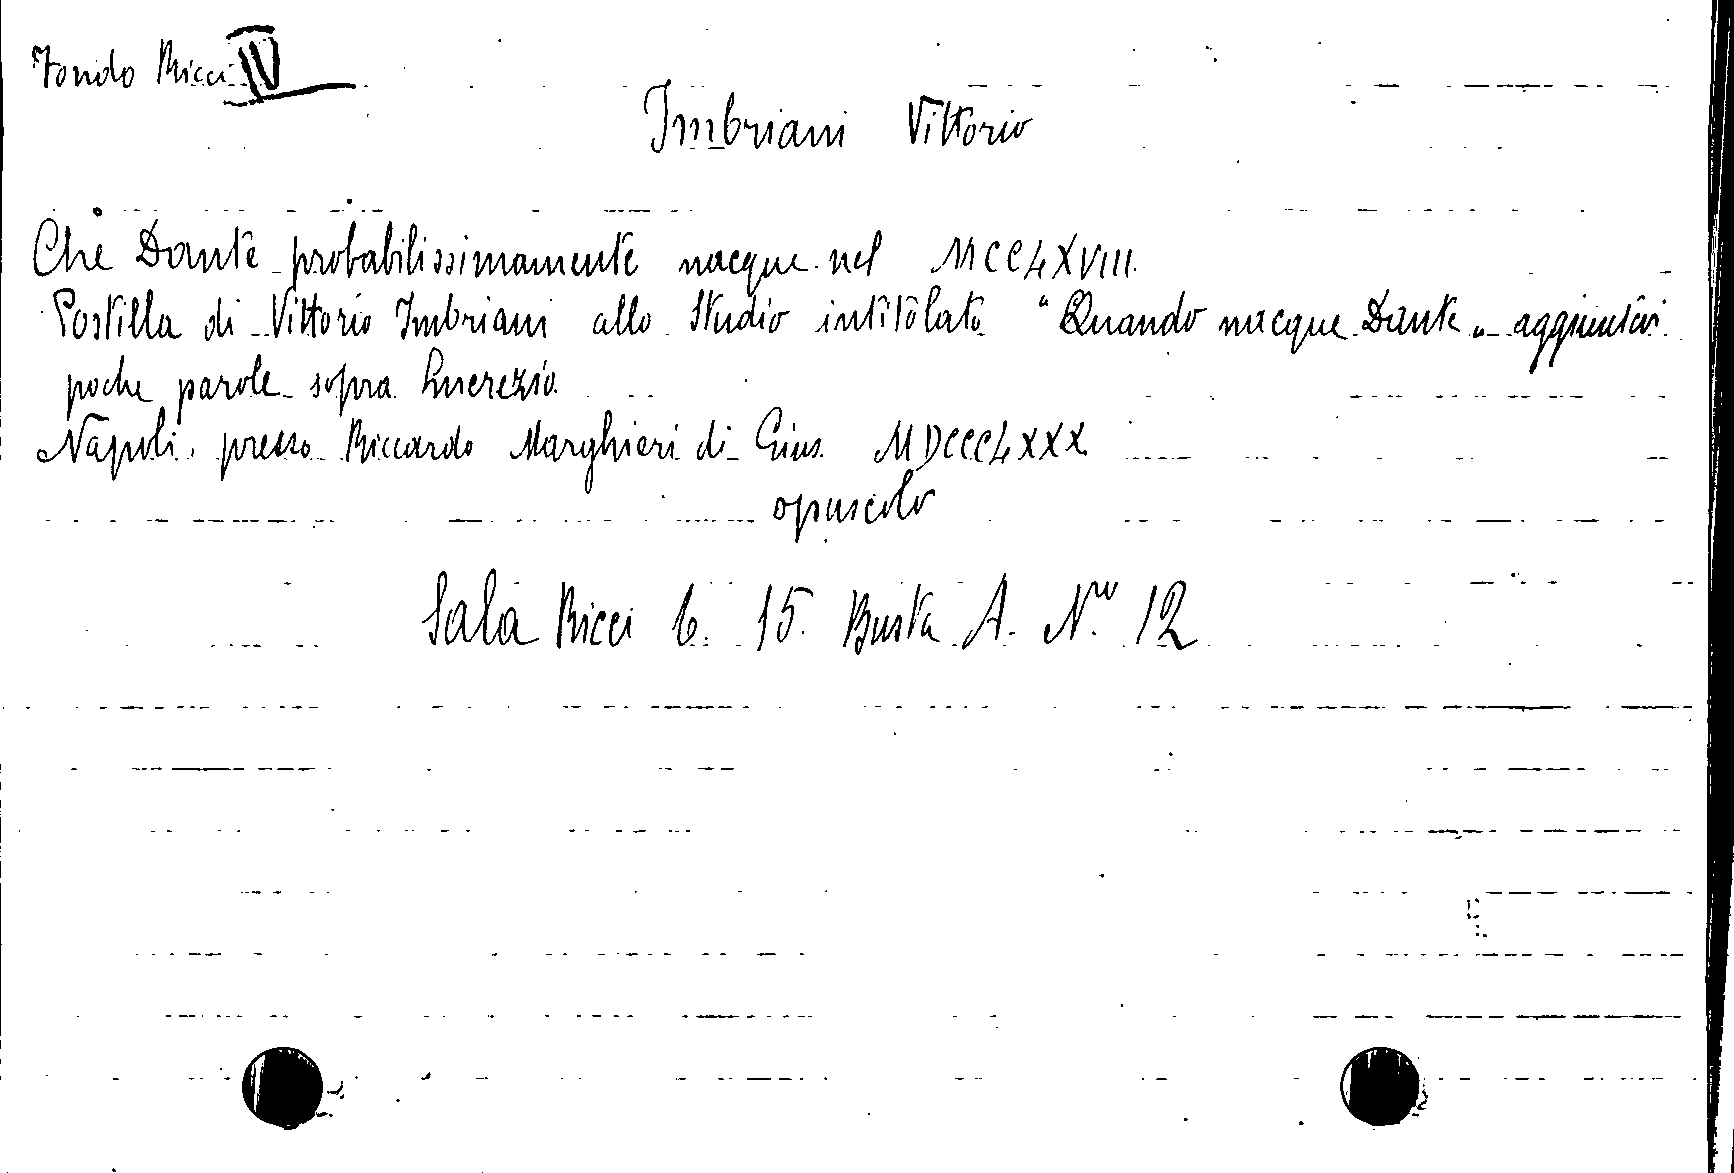 Fondo Ricci IV
Imbriani Vittorio
Che Dante probabilissimamente nacque nel MCCLXVIII.
Postilla di Vittorio Imbriani allo Studio intitolato "Quando nacque Dante" aggiuntevi
poche parole sopra Lucrezio.
Napoli, presso Riccardo Marghieri di Gius. MDCCCLXXX
opuscolo
Sala Ricci 6. 15. Busta A. N.ro 12